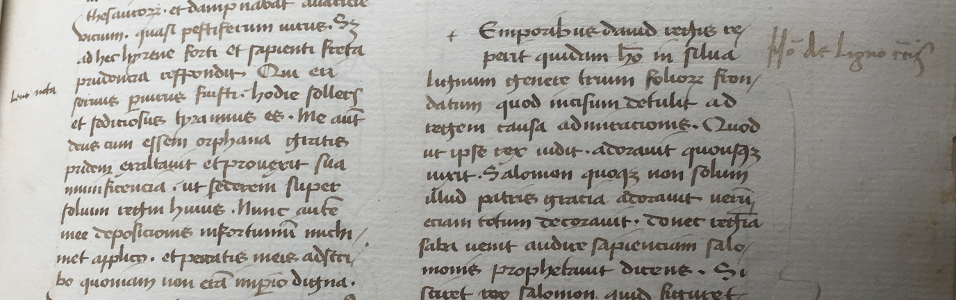 thesauroꝝ. et dampnabat auaricie
vicium. quasi pestiferum virus. Sꝫ
ad hec hyrene forti et sapienti freta
prudencia respondit. Qui eri
seruus puirus fuisti. hodie sollers
et sediciosus tyrannus es. Me aūt
deus cum essem orphana gratis
pridem exaltauit et prouexit sua
munificencia. ut sederem super
solium regni huius. Nunc autē
mee deposicionis infortuniū michi
met applico. et peccatis meis adscri-
bo quoniam non erā imperio digna.
Emporibus dauid regis re-
perit quidam hō in silua
lignum genere trium folioꝝ fron-
datum quod incisum detulit ad
regem causa admiracionis. Quod
ut ipse rex vidit. adorauit quousqꝫ
vixit. Salomon quoqꝫ non solum
illud patris gracia adorauit verū
eciam totum decorauit. donec regīa
saba venit audire sapienciam salo-
monis prophetauit dicens. Si
sciret rex salomon quid